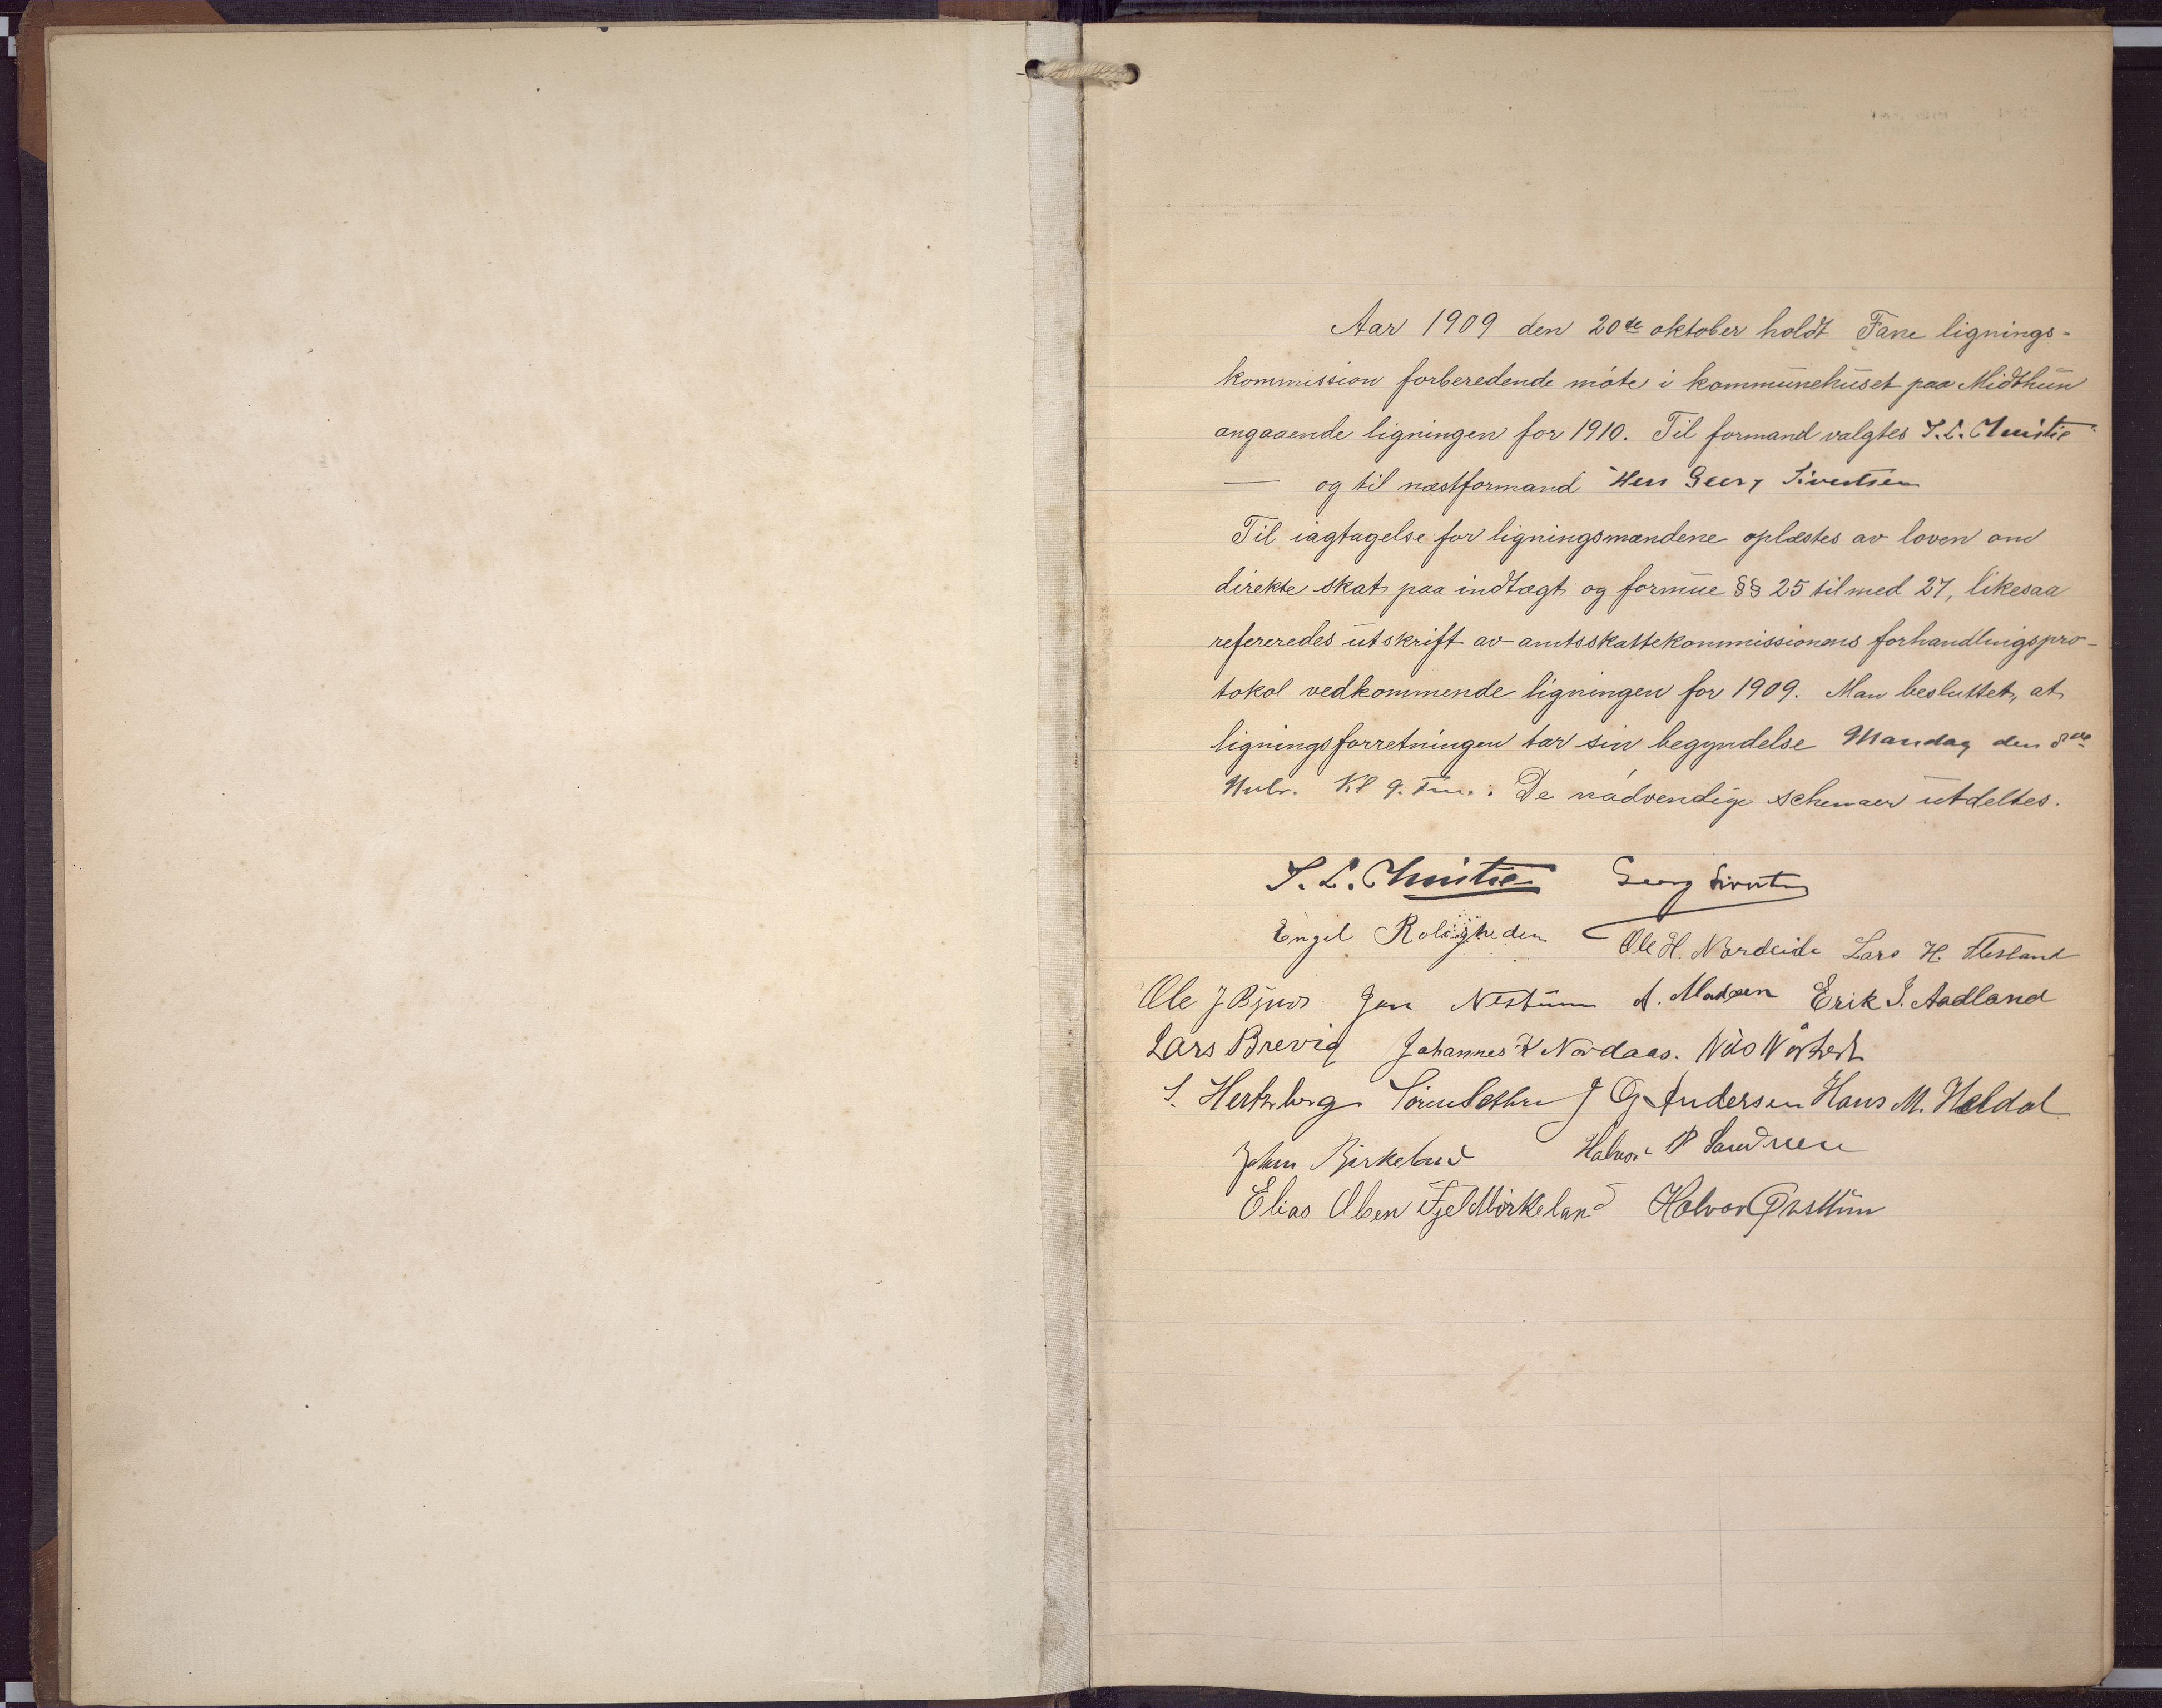 Aar 1909 den 20de oktober holdt Fane lignings-
kommission forberedende möte i kommunehuset paa Midthun
angaaende ligningen for 1910. Til formand valgtes S. L. Christie
— og til næstformand Herr Georg Sivertsen
Til iagtagelse for ligningsmændene oplæstes av loven om
direkte skat paa indtægt og formue §§ 25 til med 27, likesaa
refereredes utskrift av amtsskattekommissionens forhandlingspro-
tokol vedkommende ligningen for 1909. Man besluttet, at
ligningsforretningen tar sin begyndelse Mandag den 8de
Nvbr. Kl 9. Fm. De nödvendige schemaer utdeltes.
S. L. Christie Georg Sivertsen
Engel Roligheden Ole H. Nordeide Lars H. Flesland
Ole J Nestun A. Madsen Erik J. Aadland
Lars Brevig Johannes K Nordaas. Nils
S. Hertzberg J O Andersen Hans M. Heldal
Johan Birkeland Halvor P Sandven
Elias Olsen Fjeldbirkeland Halvor Østtun